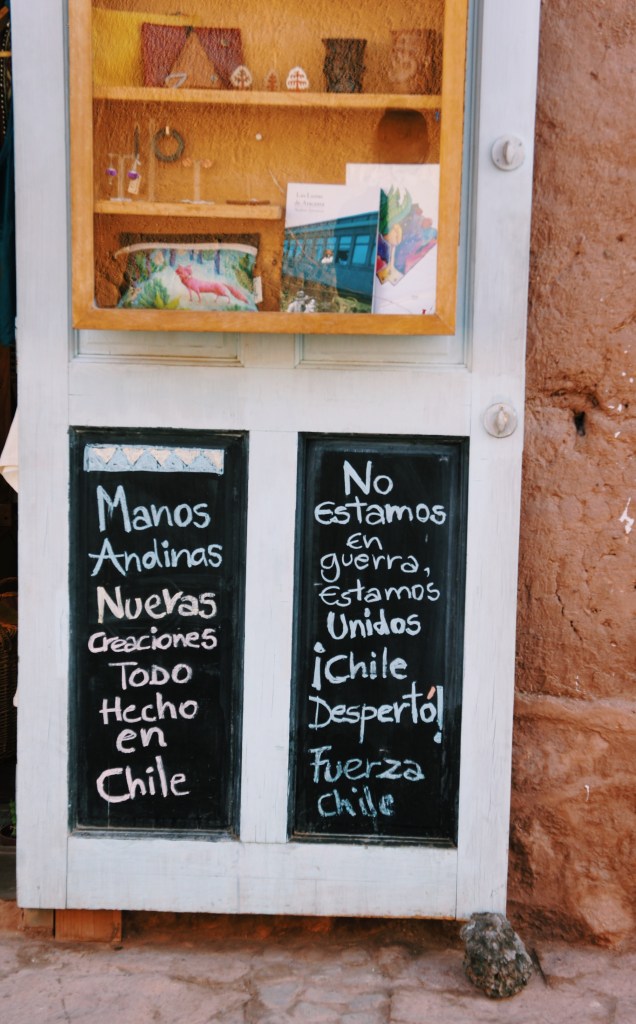 Manos
Andinas
Nuevas
Creaciones
TODO
Hecho
en
Chile
No
Estamos
En
guerra,
Estamos
Unidos
¡Chile
Despertó!
Fuerza
Chile